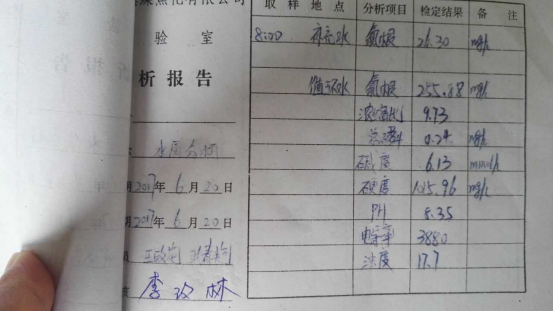 煤焦化有限公司
验 室
析 报 告
水质分析
月 2017年 6 月 20 日
月 2017年 6 月 20 日
李 玫 林
取 样 地 点 分析项目 检定结果 备 注
8:00 补充水 氯根 26.30 mg/L
循环水 氯根 255.88 mg/L
浓缩倍 9.73
总磷 0.24 mg/L
碱度 6.13 mmol/L
硬度 mg/L
PH 8.35
电导率 3880
浊度 17.7